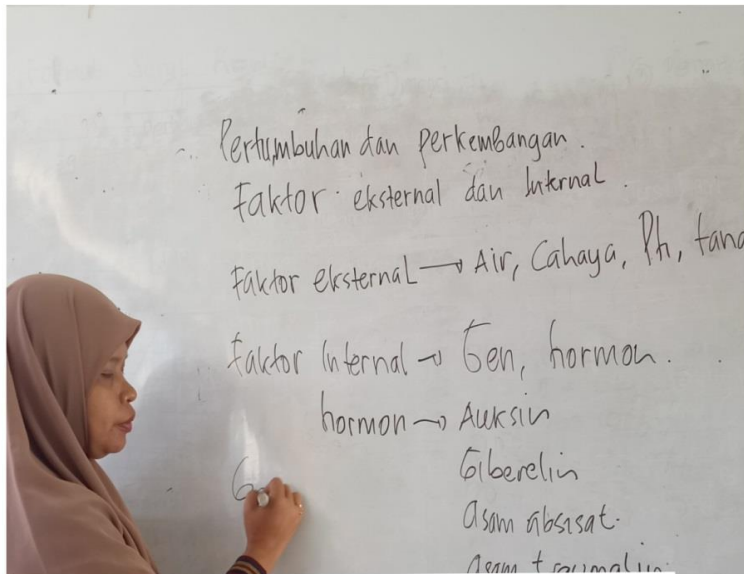 Pertumbuhan dan perkembangan.
Faktor eksternal dan Internal.
Faktor eksternal → Air, Cahaya, Ph, tana
Faktor Internal → Gen, hormon.
hormon → Auksin
Giberelin
asam absisat.
G
asam traumalin